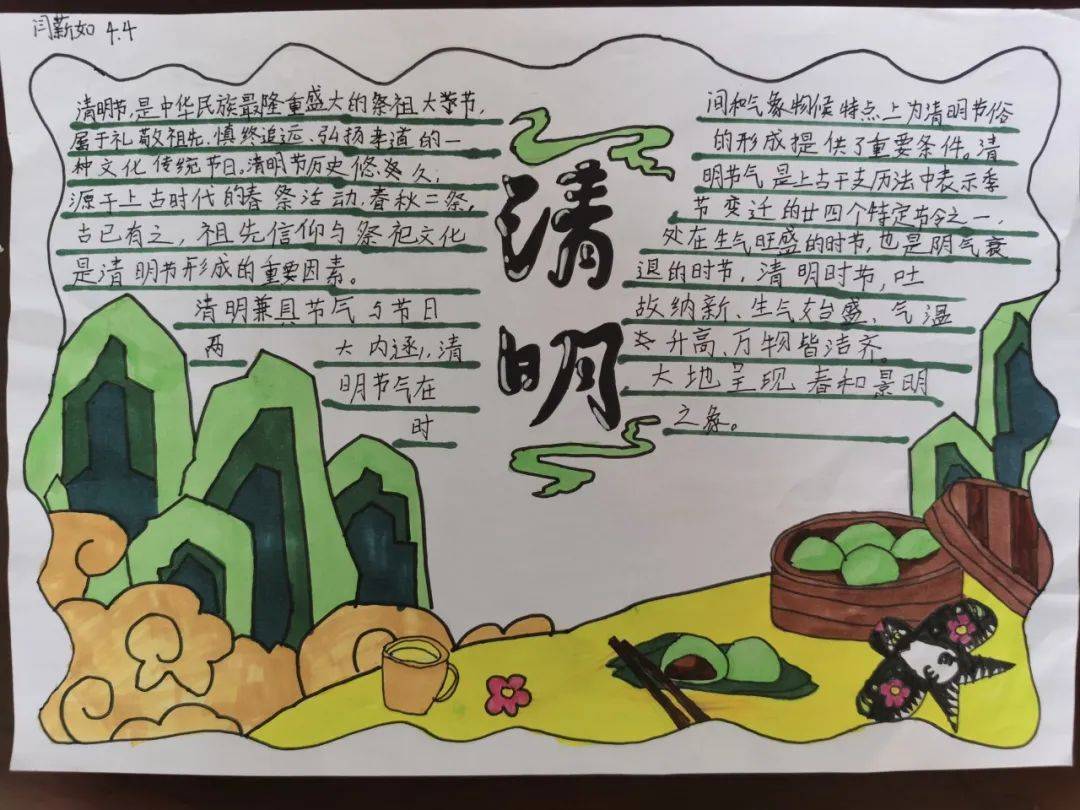 闫薪如 4.4
清明节,是中华民族最隆重盛大的祭祖大节,
属于礼敬祖先、慎终追远、弘扬孝道的一
种文化传统节日。清明节历史悠久,
源于上古时代的春祭活动,春秋二祭,
古已有之,祖先信仰与祭祀文化
是清明节形成的重要因素。
清明兼具节气与节日
两 大内逐,清
明节气在
时
清
明
间和气象物候特点上为清明节俗
的形成提供了重要条件。清
明节气是上古干支历法中表示季
节变迁的廿四个特定节令之一,
处在生气旺盛的时节,也是阴气衰
退的时节,清明时节,吐
故纳新、生气台盛、气温
升高、万物皆洁齐。
大地呈现春和景明
之象。